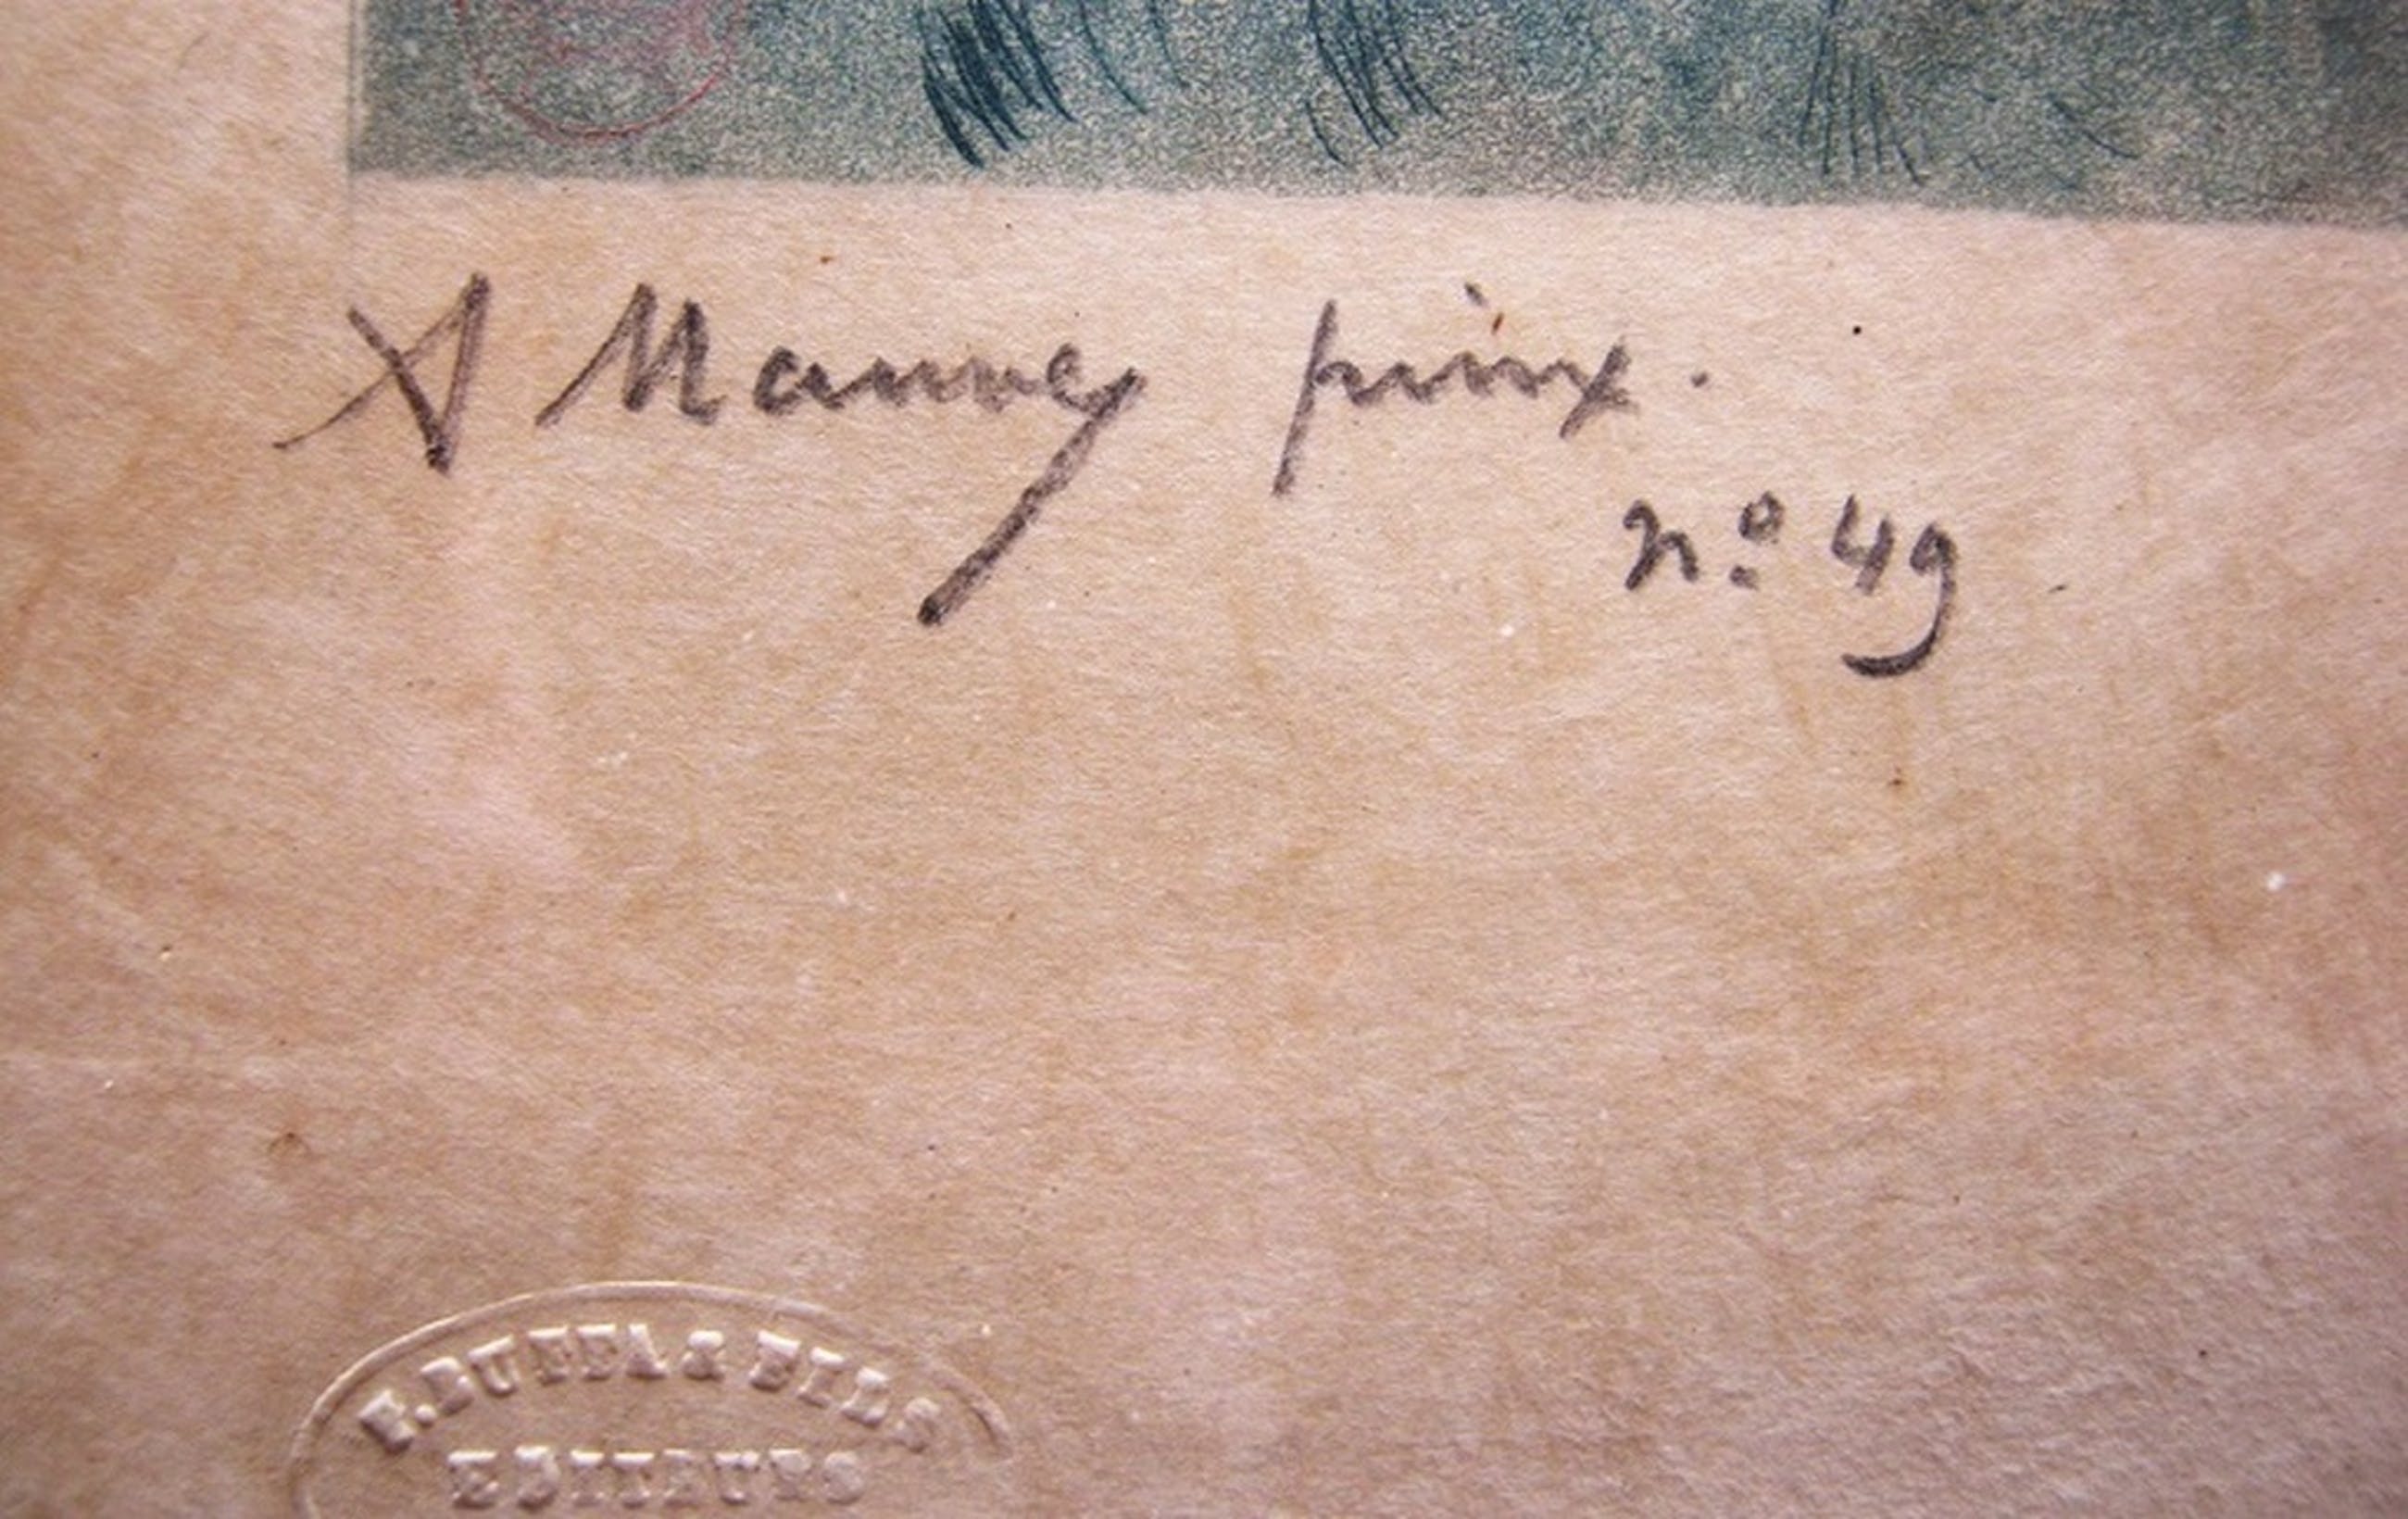 A Mauve pinx.
nº 49
F. BUFFA & FILS
EDITEURS